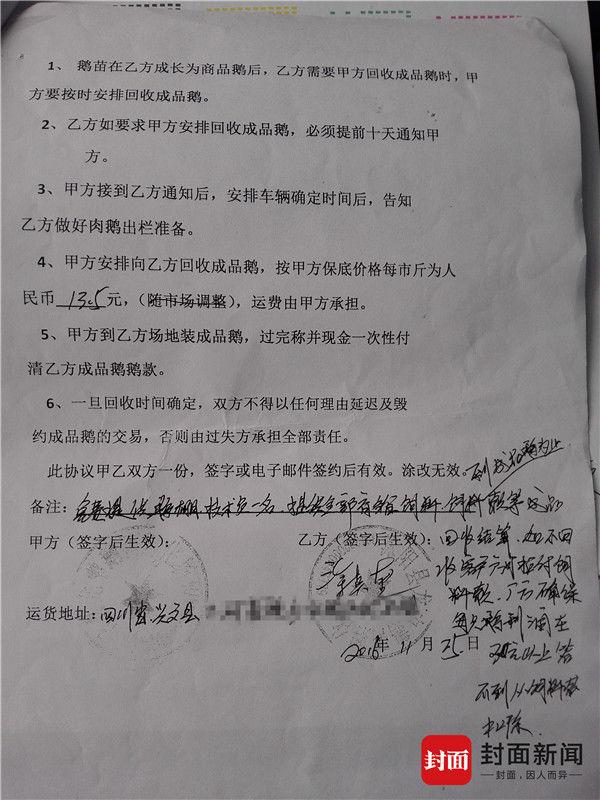 1、 鹅苗在乙方成长为商品鹅后，乙方需要甲方回收成品鹅时，甲
方要按时安排回收成品鹅。
2、乙方如要求甲方安排回收成品鹅，必须提前十天通知甲
方。
3、甲方接到乙方通知后，安排车辆确定时间后，告知
乙方做好肉鹅出栏准备。
4、甲方安排向乙方回收成品鹅，按甲方保底价格每市斤为人
民币 13.5 元，（随市场调整），运费由甲方承担。
5、甲方到乙方场地装成品鹅，过完称并现金一次性付
清乙方成品鹅鹅款。
6、一旦回收时间确定，双方不得以任何理由延迟及毁
约成品鹅的交易，否则由过失方承担全部责任。
此协议甲乙双方一份，签字或电子邮件签约后有效。涂改无效。
备注： 技术员一名
甲方（签字后生效）：
乙方（签字后生效）：
回收结算，如不回
料款
确保
利润在
30元以上
不到从饲料款
扣除
运货地址：四川省兴文县
2016年11月25日
封面 封面新闻
封面，因人而异